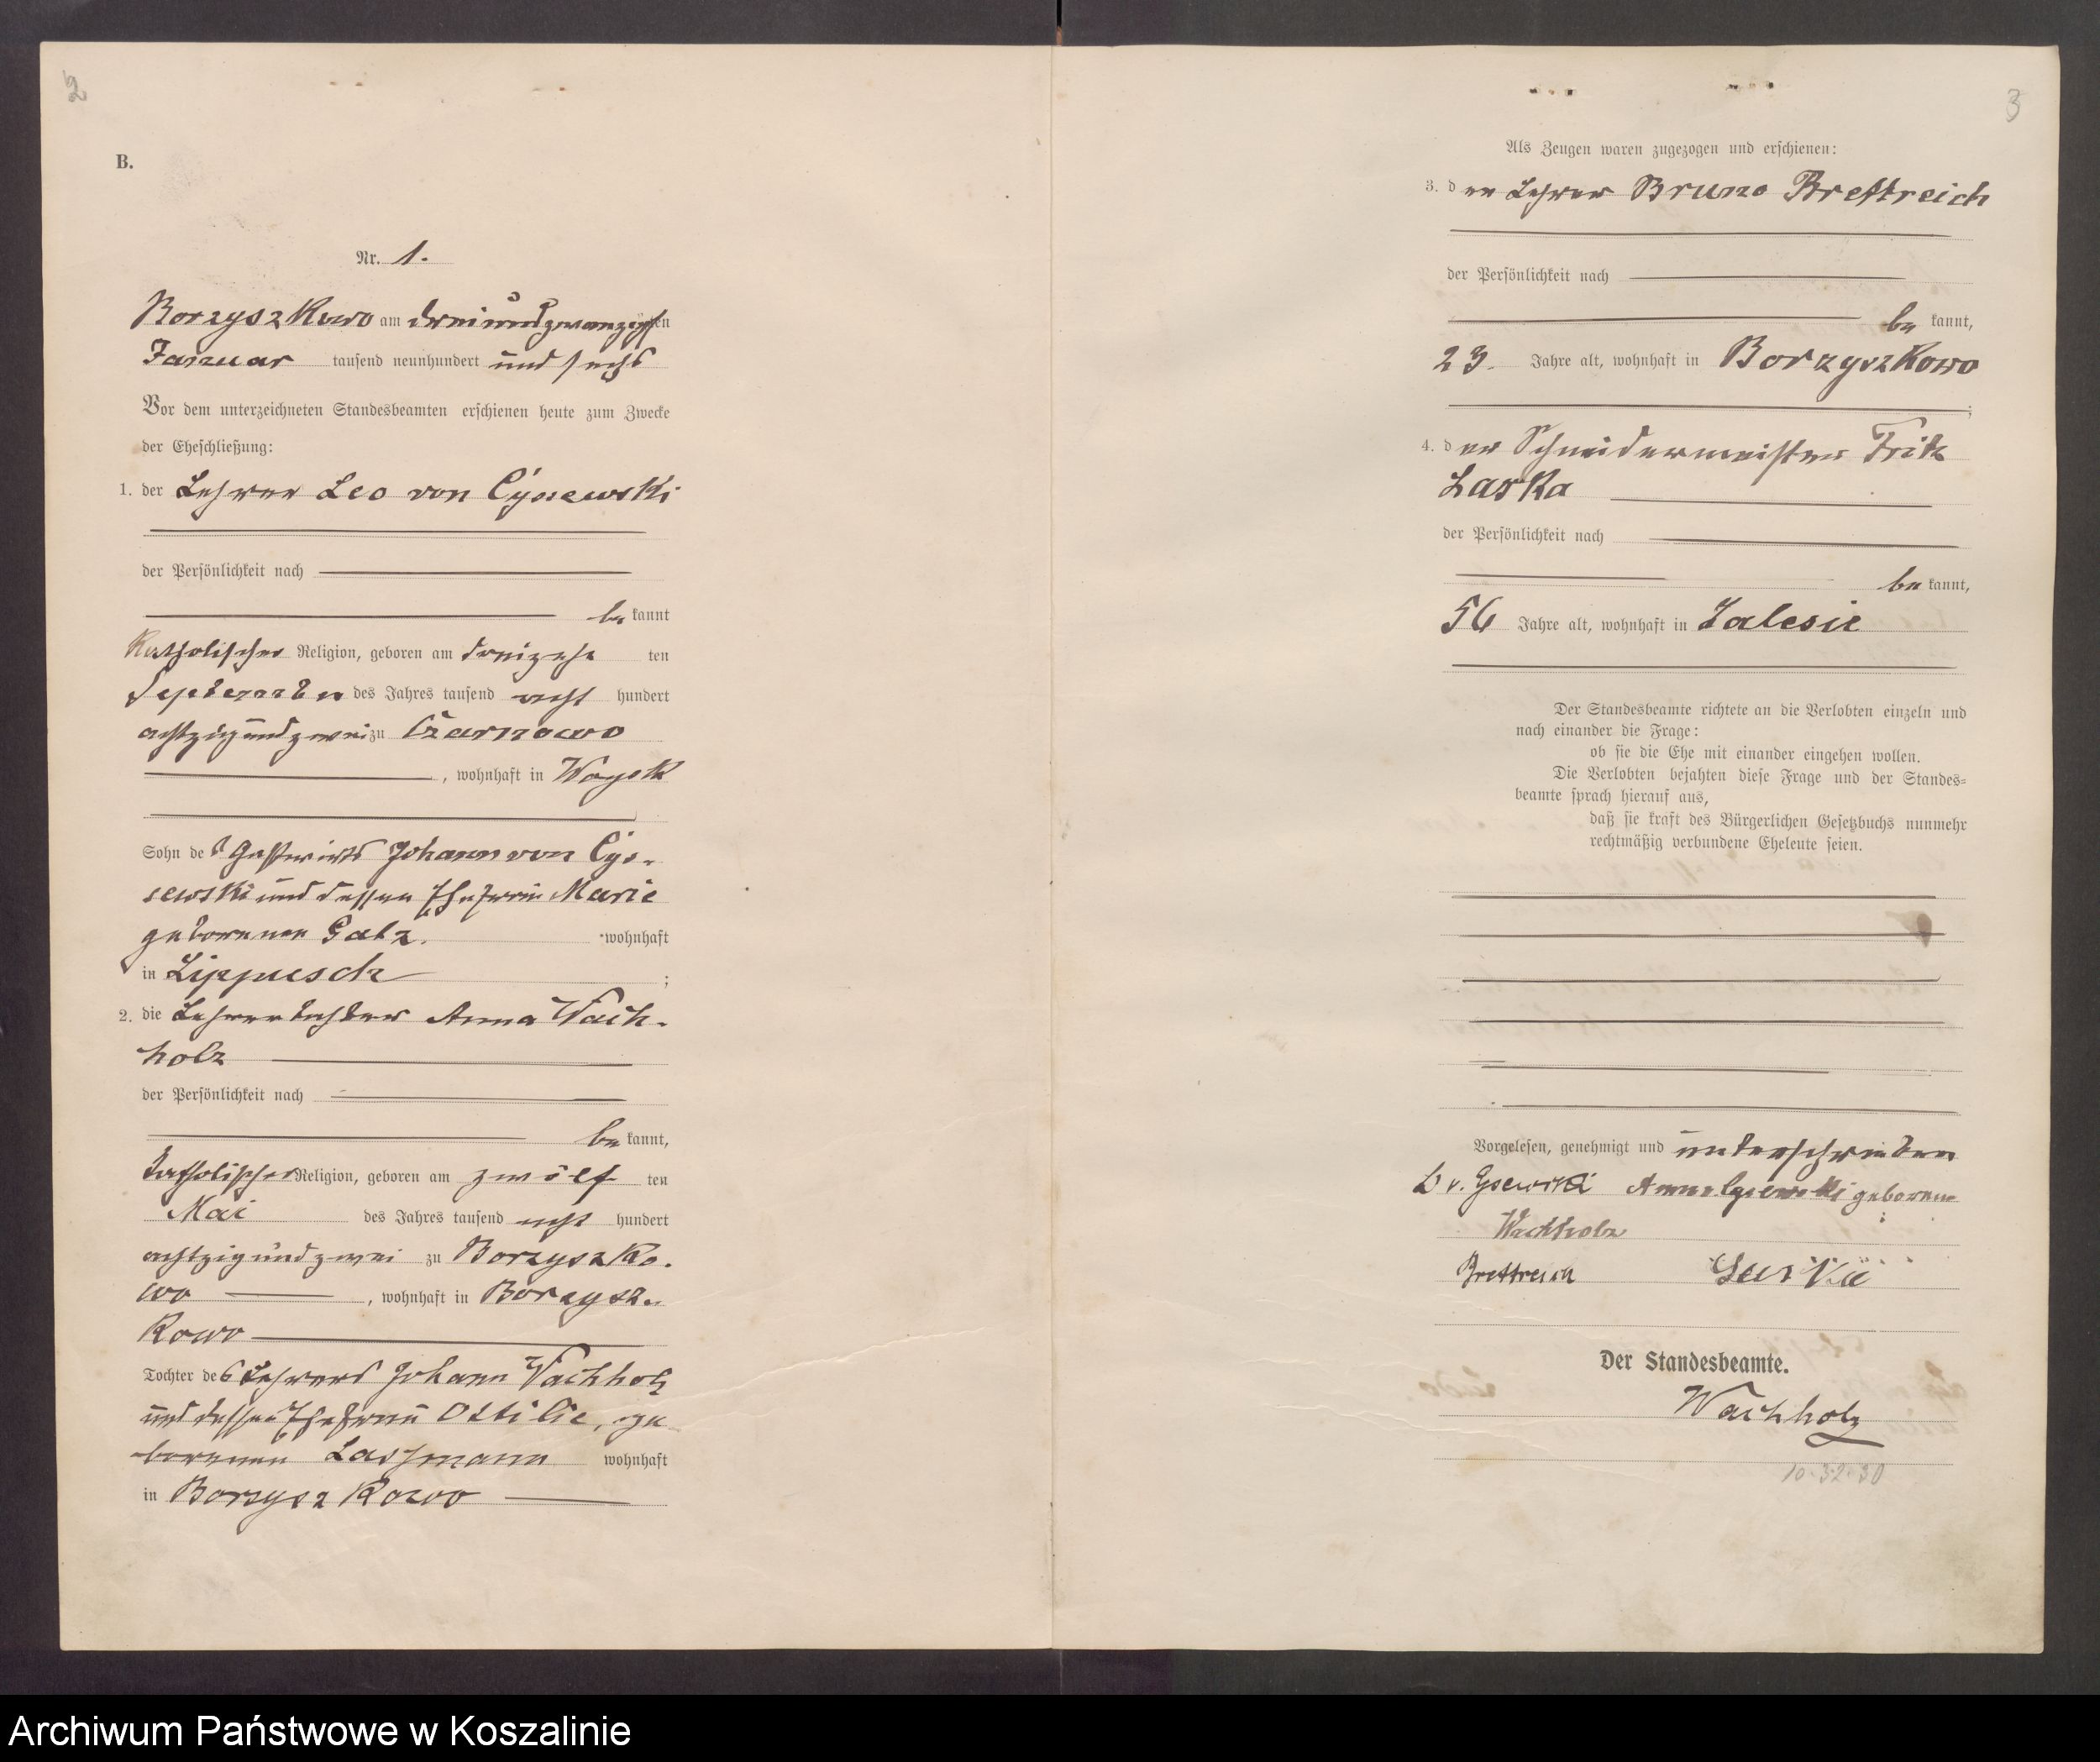 2
B.
Nr. 1.
Borzyszkowo am dreiundzwanzigsten
Januar tausend neunhundert und sechs
Vor dem unterzeichneten Standesbeamten erschienen heute zum Zwecke
der Eheschließung:
1. der Lehrer Leo von Cysewski
der Persönlichkeit nach
be kannt
katholischer Religion, geboren am dreizehn ten
September des Jahres tausend acht hundert
achtzig und zwei zu Czarnowo
, wohnhaft in
Sohn des Gastwirts Johann von Cys-
sewski und dessen Ehefrau Marie
geborenen wohnhaft
in Lippusch ;
2. die Lehrertochter Anna Wach-
holz
der Persönlichkeit nach
be kannt,
katholischer Religion, geboren am zwölf ten
Mai des Jahres tausend acht hundert
achtzig und zwei zu Borzyszko-
wo , wohnhaft in Borzysz-
kowo
Tochter des Lehrers Johann Wachholz
und dessen Ehefrau Ottilie, ge
borenen wohnhaft
in Borzyszkowo
3
Als Zeugen waren zugezogen und erschienen:
3. der Lehrer Bruno Brettreich
der Persönlichkeit nach
be kannt,
23 Jahre alt, wohnhaft in Borzyszkowo
;
4. der Schneidermeister Fritz
Laska
der Persönlichkeit nach
be kannt,
56 Jahre alt, wohnhaft in Zalesie
Der Standesbeamte richtete an die Verlobten einzeln und
nach einander die Frage:
ob sie die Ehe mit einander eingehen wollen.
Die Verlobten bejahten diese Frage und der Standes=
beamte sprach hierauf aus,
daß sie kraft des Bürgerlichen Gesetzbuchs nunmehr
rechtmäßig verbundene Eheleute seien.
Vorgelesen, genehmigt und unterschrieben
L v. Cysewski Anna Cysewski geborene
Wachholz
Brettreich Laska
Der Standesbeamte.
Wachholz
10.32.30
Archiwum Państwowe w Koszalinie